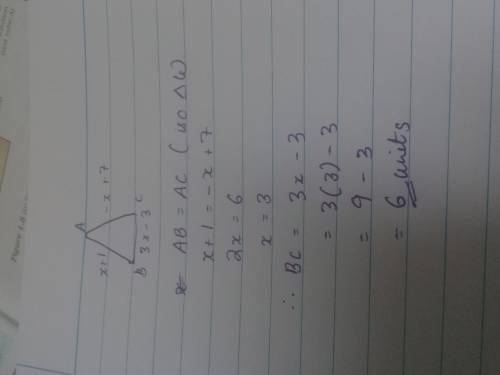 A
x+1
-x+7
B
3x-3
C
AB = AC
x+1 = -x+7
2x = 6
x = 3
∴ BC = 3x-3
= 3(3)-3
= 9-3
= 6 units